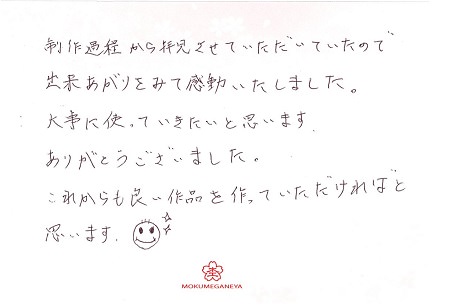 制作過程から拝見させていただいていたので
出来あがりをみて感動いたしました。
大事に使っていきたいと思います.
ありがとうございました。
これからも良い作品を作っていただければと
思います.
MOKUMEGANEYA